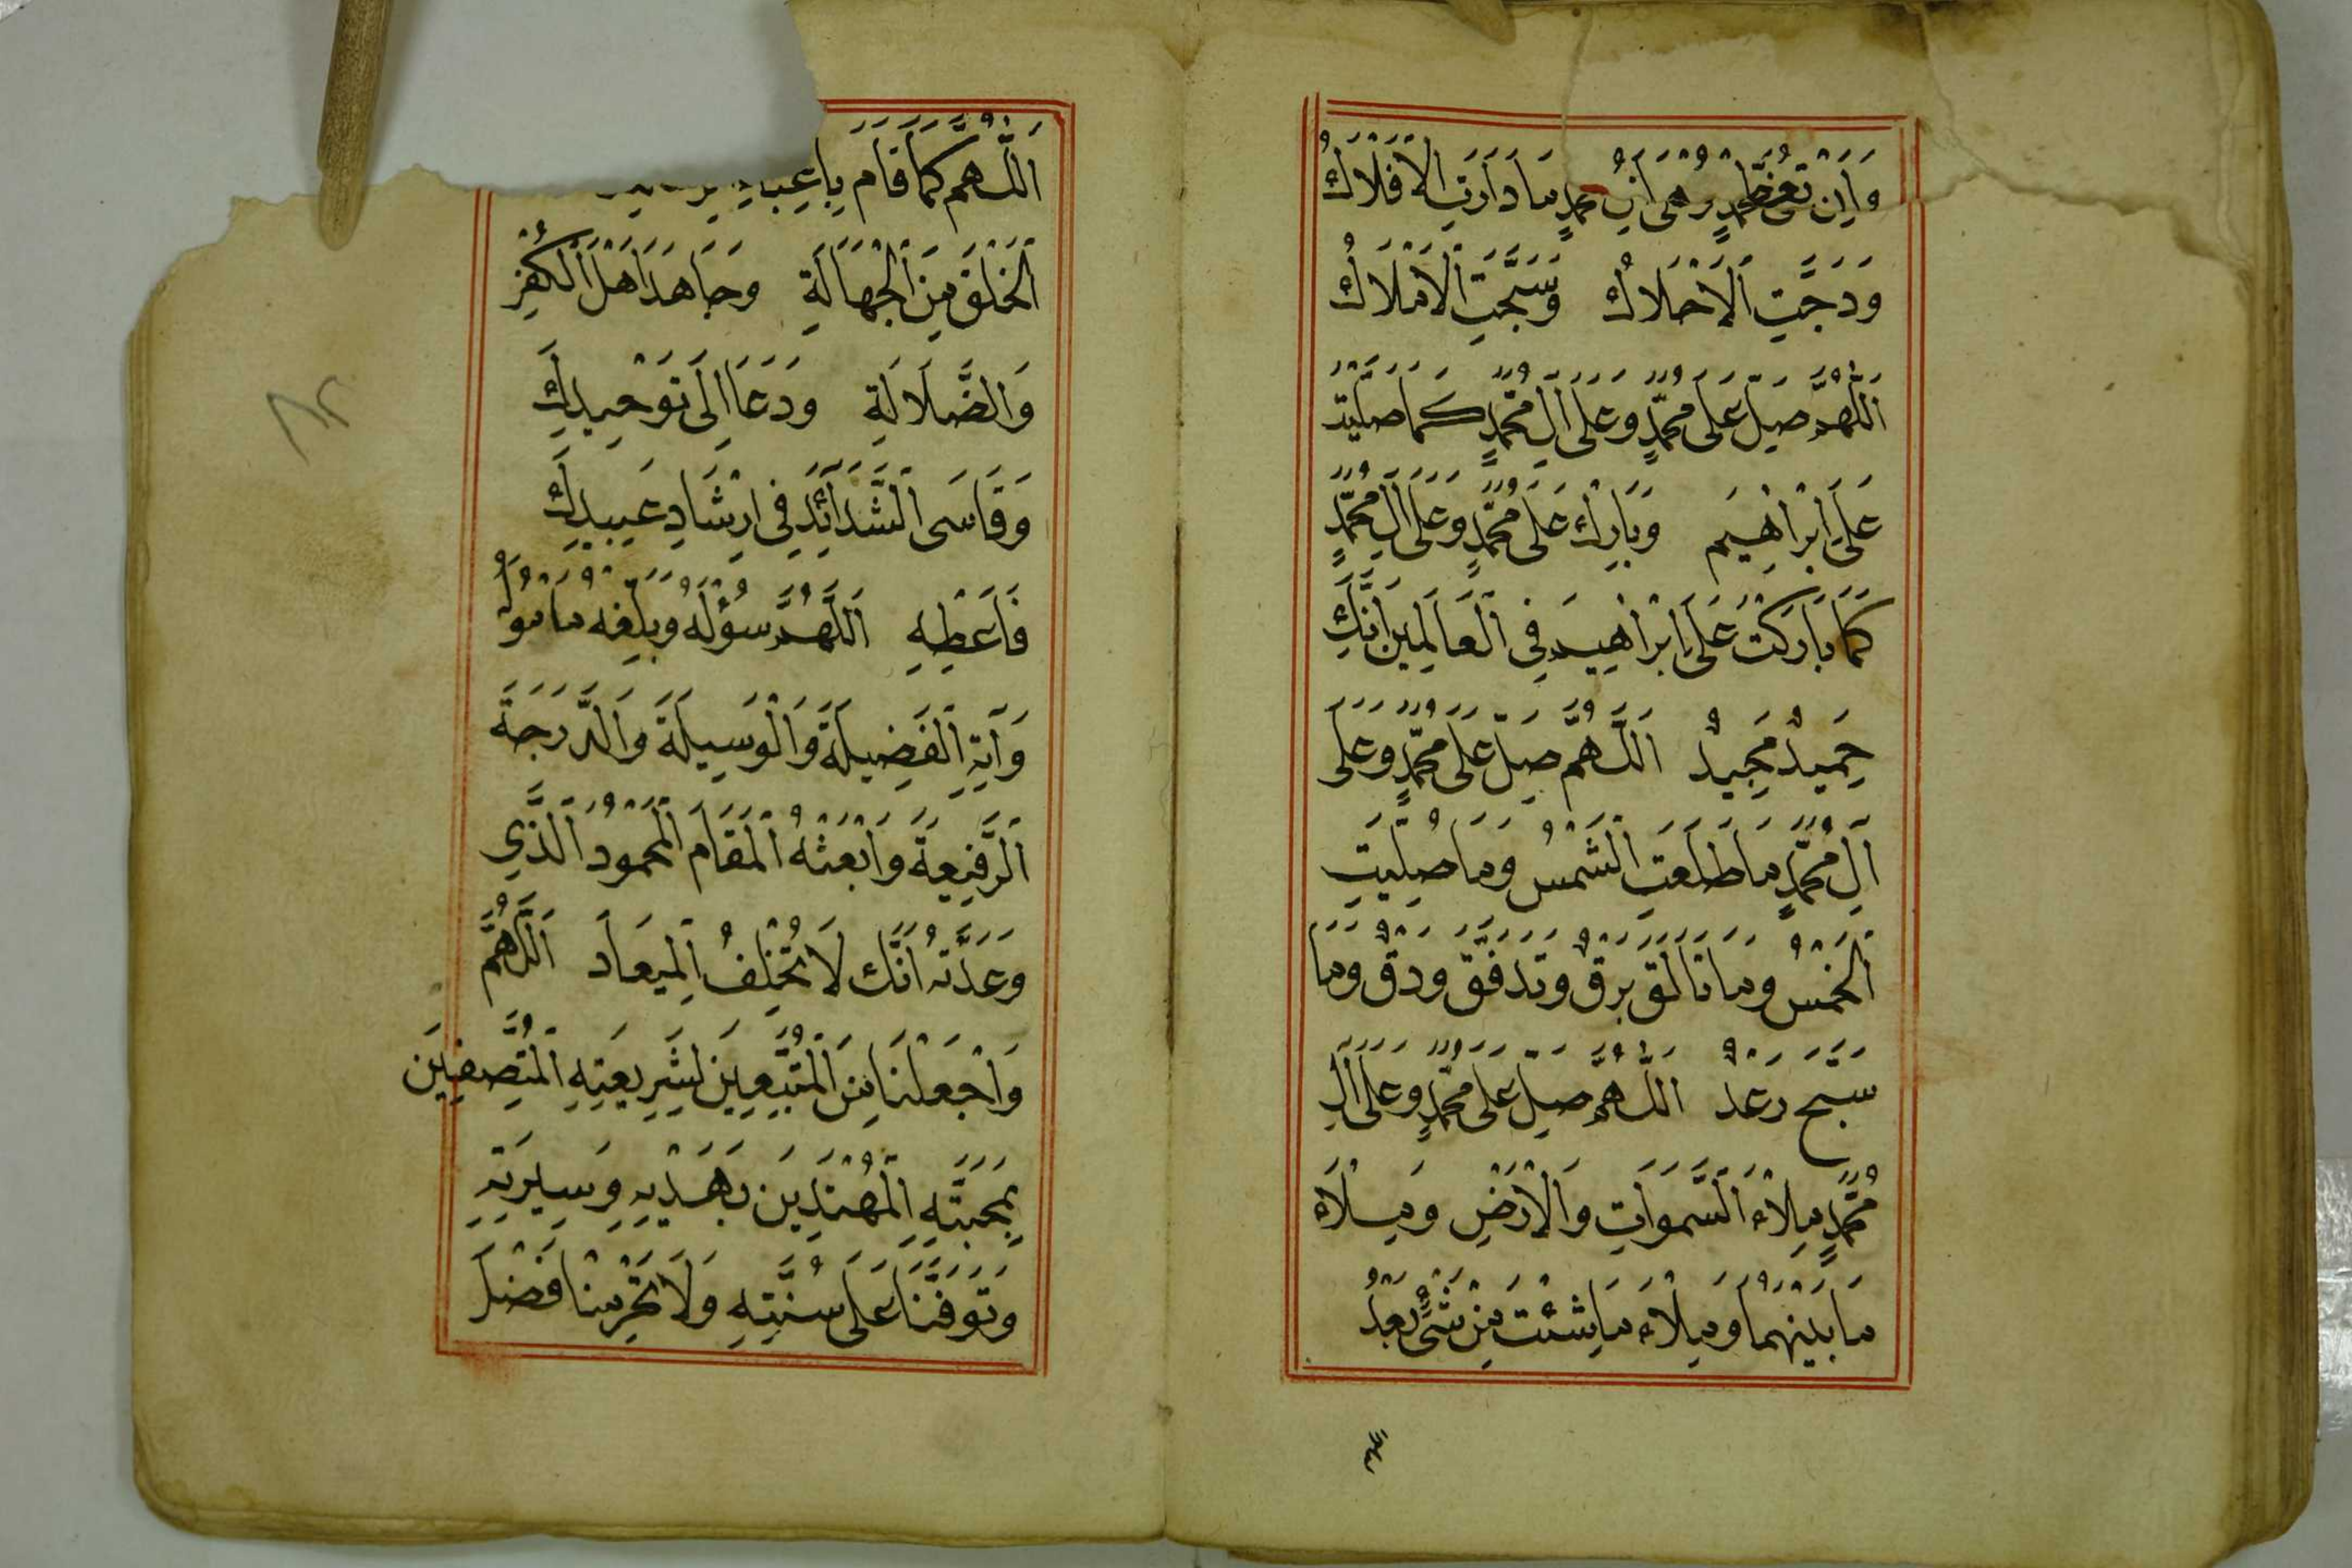 وَاَنْ تُعَظِّمَ مُحَمَّدٍ مَا دَارَتِ الْاَفْلَاكُ
وَدَجَّتِ الْاَحْلَاكُ وَسَبَّحَتِ الْاَمْلَاكُ
اَللّٰهُمَّ صَلِّ عَلَى مُحَمَّدٍ وَعَلَى اٰلِ مُحَمَّدٍ كَمَا صَلَّيْتَ
عَلَى اِبْرَاهِيمَ وَبَارِكْ عَلَى مُحَمَّدٍ وَعَلَى اٰلِ مُحَمَّدٍ
كَمَا بَارَكْتَ عَلَى اِبْرَاهِيمَ فِي الْعَالَمِينَ اِنَّكَ
حَمِيدٌ مَجِيدٌ اَللّٰهُمَّ صَلِّ عَلَى مُحَمَّدٍ وَعَلَى
اٰلِ مُحَمَّدٍ مَا طَلَعَتِ الشَّمْسُ وَمَا صُلِّيَتِ
الْخَمْسُ وَمَا تَاَلَّقَ بَرْقٌ وَتَدَفَّقَ وَدْقٌ وَمَا
سَبَّحَ رَعْدٌ اَللّٰهُمَّ صَلِّ عَلَى مُحَمَّدٍ وَعَلَى اٰلِ
مُحَمَّدٍ مِلْاءَ السَّمٰوَاتِ وَالْاَرْضِ وَمِلْاءَ
مَا بَيْنَهُمَا وَمِلْاءَ مَا شِئْتَ مِنْ شَيْءٍ بَعْدُ
اَللّٰهُمَّ كَمَا قَامَ بِاَعْبَاءِ
الْخَلْقَ مِنَ الْجَهَالَةِ وَجَاهَدَ اَهْلَ الْكُفْرِ
وَالضَّلَالَةِ وَدَعَا اِلَى تَوْحِيدِكَ
وَقَاسَى الشَّدَائِدَ فِي اِرْشَادِ عَبِيدِكَ
فَاَعْطِهِ اَللّٰهُمَّ سُؤْلَهُ وَبَلِّغْهُ مَاْمُولَهُ
وَآتِهِ الْفَضِيلَةَ وَالْوَسِيلَةَ وَالدَّرَجَةَ
الرَّفِيعَةَ وَابْعَثْهُ الْمَقَامَ الْمَحْمُودَ الَّذِي
وَعَدْتَهُ اِنَّكَ لَا تُخْلِفُ الْمِيعَادَ اَللّٰهُمَّ
وَاجْعَلْنَا مِنَ الْمُتَّبِعِينَ لِشَرِيعَتِهِ الْمُتَّصِفِينَ
بِمَحَبَّتِهِ الْمُهْتَدِينَ بِهَدْيِهِ وَسِيرَتِهِ
وَتَوَفَّنَا عَلَى سُنَّتِهِ وَلَا تَحْرِمْنَا فَضْلَ